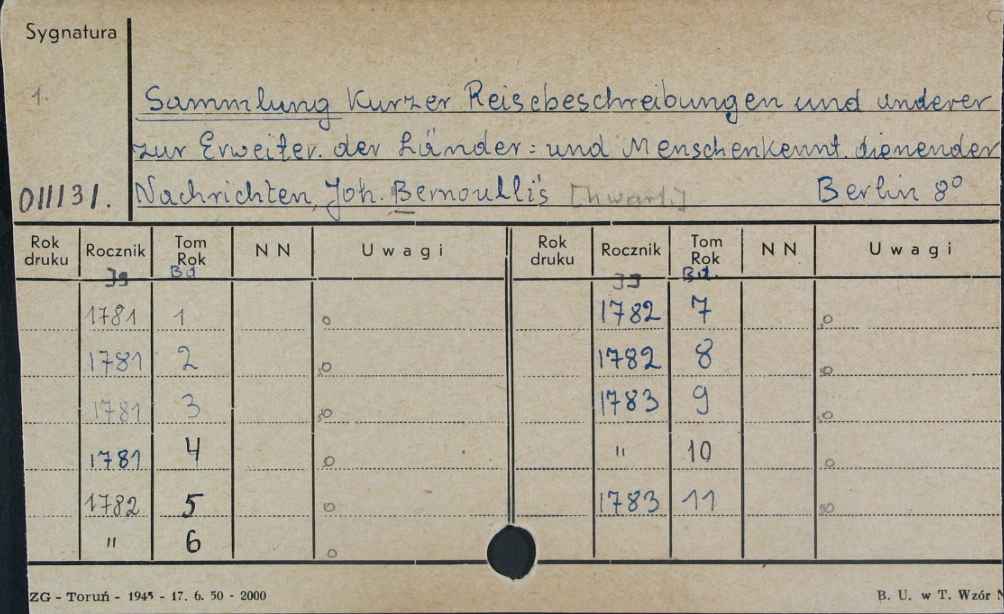 Sygnatura
1.
Sammlung Kurzer Reisebeschreibungen und anderer
zur Erweiter. der Länder = und Menschenkennt. dienender
OIII31. Nachrichten, Joh. Bernoulli's Berlin 8°
Rok druku Rocznik Tom Rok NN Uwagi Rok druku Rocznik Tom Rok NN Uwagi
Jg Bd Jg Bd.
1781 1 1782 7
1781 2 1782 8
1781 3 1783 9
1781 4 " 10
1782 5 1783 11
" 6
ZG - Toruń - 1945 - 17. 6. 50 - 2000 B. U. w T. Wzór